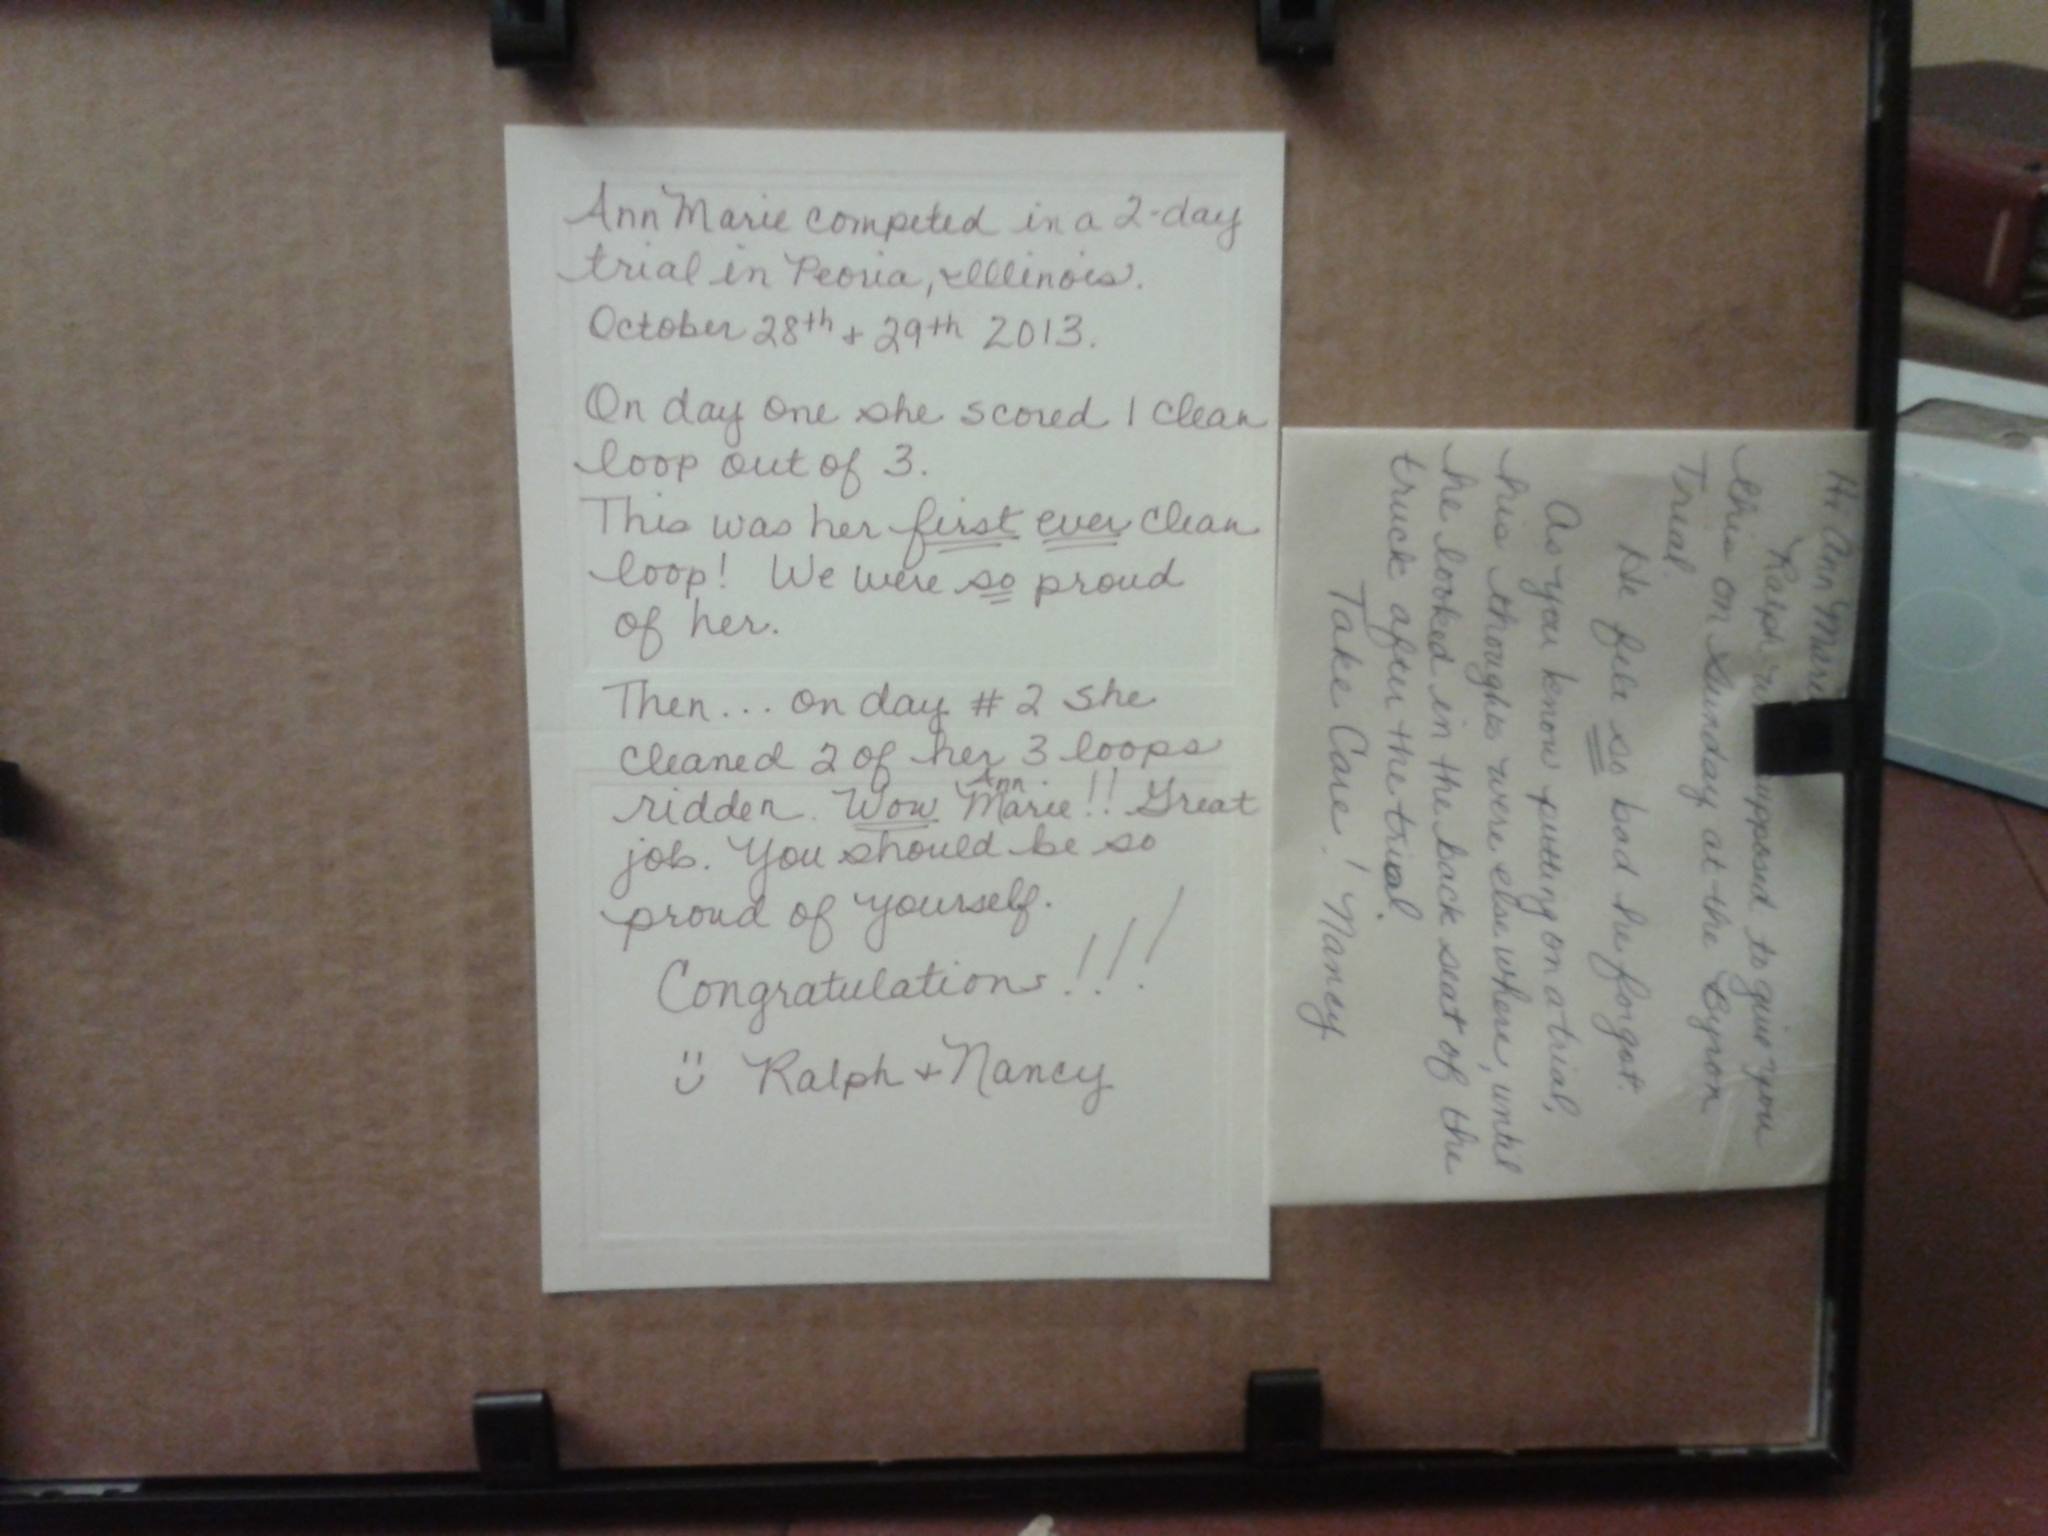 Ann Marie competed in a 2-day
trial in Peoria, Illinois.
October 28th + 29th 2013.
On day one she scored 1 clean
loop out of 3.
This was her first ever clean
loop! We were so proud
of her.
Then... on day #2 she
cleaned 2 of her 3 loops
ridden. Wow Ann Marie!! Great
job. You should be so
proud of yourself.
Congratulations!!!
Ralph + Nancy
Hi Ann Marie
Ralph to give you
this on Sunday at the Byron
Trial.
He felt so bad he forgot.
As you know putting on a trial,
his thoughts were elsewhere, until
he looked in the back seat of the
truck after the trial.
Take Care! Nancy